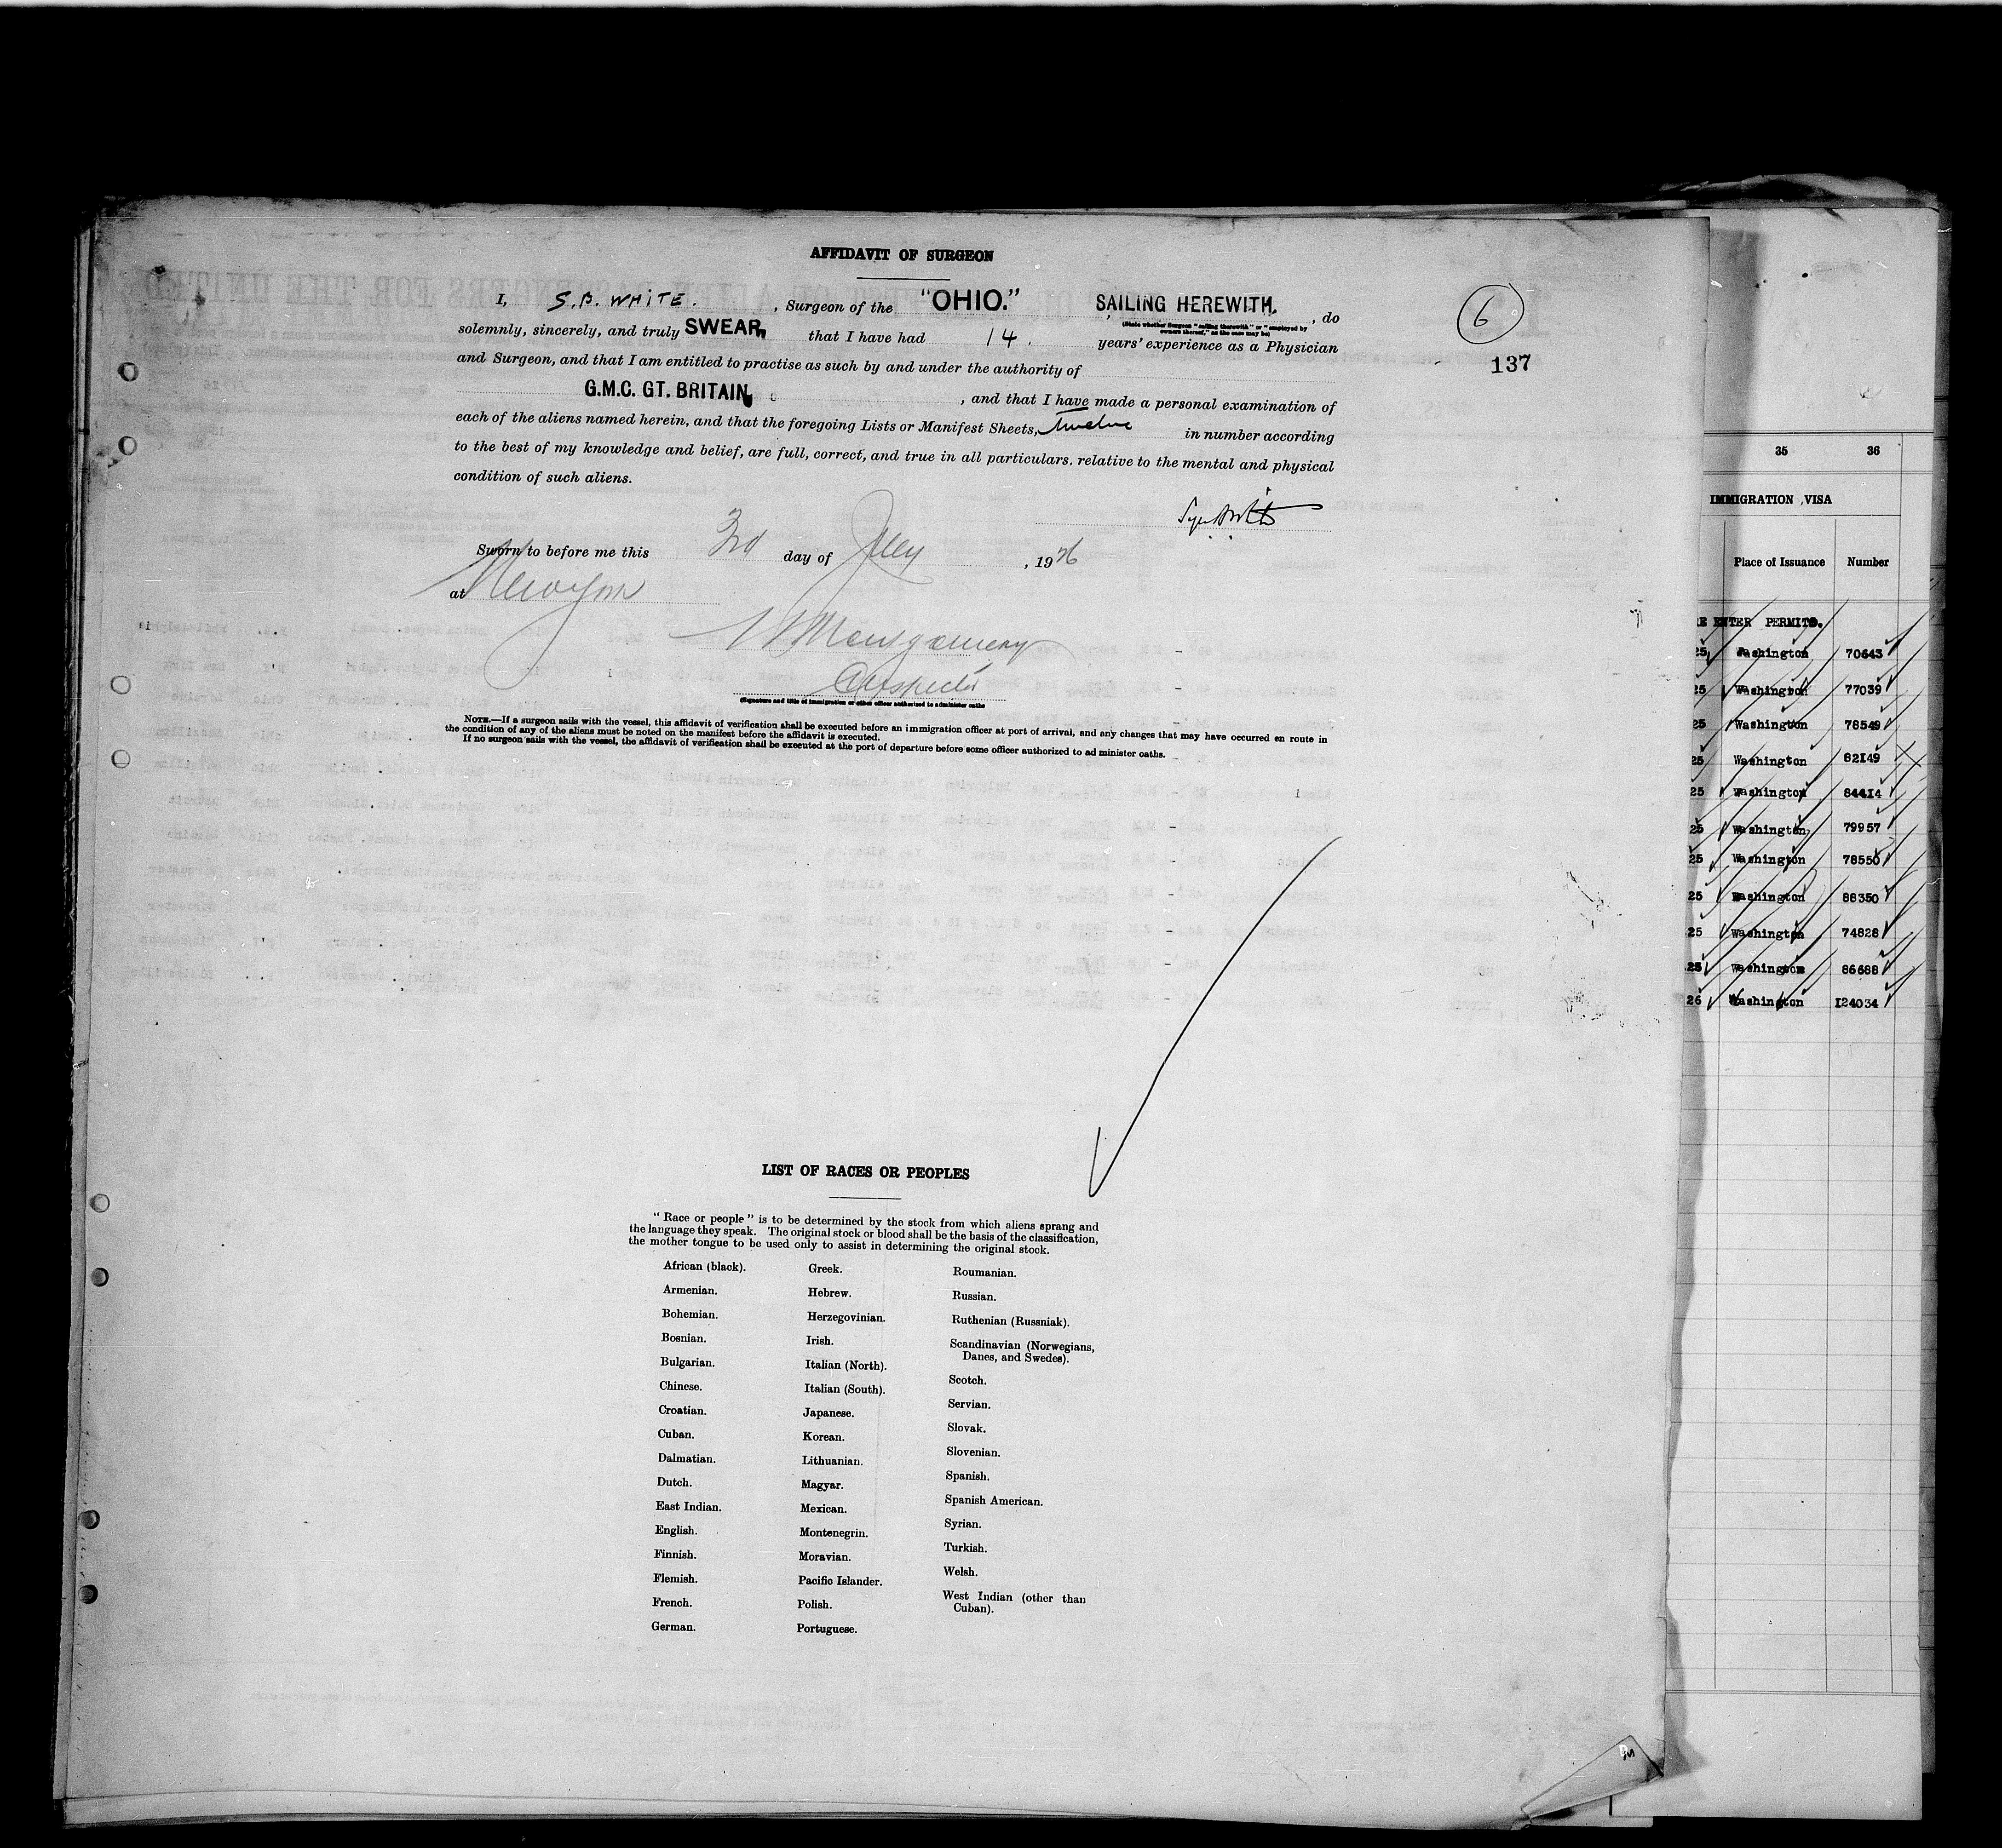 AFFIDAVIT OF SURGEON
I, S.B. WHITE. , Surgeon of the "OHIO." SAILING HEREWITH. , do
(State whether Surgeon "sailing therewith" or "employed by owners thereof," as the case may be)
solemnly, sincerely, and truly SWEAR, that I have had 14. years' experience as a Physician
and Surgeon, and that I am entitled to practise as such by and under the authority of
G.M.C. GT. BRITAIN , and that I have made a personal examination of
each of the aliens named herein, and that the foregoing Lists or Manifest Sheets, twelve in number according
to the best of my knowledge and belief, are full, correct, and true in all particulars, relative to the mental and physical
condition of such aliens.
Sworn to before me this 3rd day of July , 1926
at New York
Montgomery
Inspector
(Signature and title of immigration or other officer authorized to administer oaths
NOTE.—If a surgeon sails with the vessel, this affidavit of verification shall be executed before an immigration officer at port of arrival, and any changes that may have occurred en route in
the condition of any of the aliens must be noted on the manifest before the affidavit is executed.
If no surgeon sails with the vessel, the affidavit of verification shall be executed at the port of departure before some officer authorized to ad minister oaths.
6
137
LIST OF RACES OR PEOPLES
"Race or people" is to be determined by the stock from which aliens sprang and
the language they speak. The original stock or blood shall be the basis of the classification,
the mother tongue to be used only to assist in determining the original stock.
African (black).
Armenian.
Bohemian.
Bosnian.
Bulgarian.
Chinese.
Croatian.
Cuban.
Dalmatian.
Dutch.
East Indian.
English.
Finnish.
Flemish.
French.
German.
Greek.
Hebrew.
Herzegovinian.
Irish.
Italian (North).
Italian (South).
Japanese.
Korean.
Lithuanian.
Magyar.
Mexican.
Montenegrin.
Moravian.
Pacific Islander.
Polish.
Portuguese.
Roumanian.
Russian.
Ruthenian (Russniak).
Scandinavian (Norwegians,
Danes, and Swedes).
Scotch.
Servian.
Slovak.
Slovenian.
Spanish.
Spanish American.
Syrian.
Turkish.
Welsh.
West Indian (other than
Cuban).
35 36
IMMIGRATION VISA
Place of Issuance Number
ENTER PERMITS.
25 Washington 70643
25 Washington 77039
25 Washington 78549
25 Washington 82149
25 Washington 84414
25 Washington 79957
25 Washington 78550
25 Washington 88350
25 Washington 74828
25 Washington 86688
26 Washington 124034